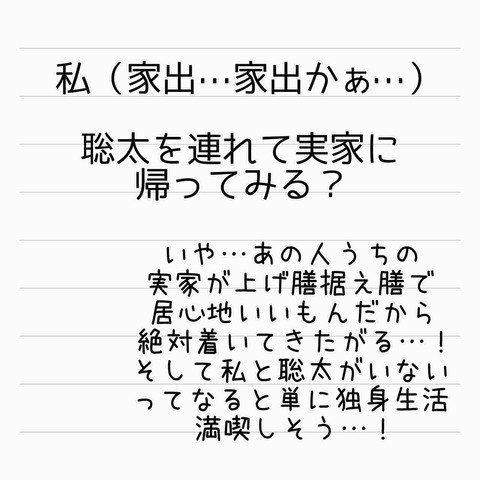 私（家出…家出かぁ…）
聡太を連れて実家に
帰ってみる？
いや…あの人うちの
実家が上げ膳据え膳で
居心地いいもんだから
絶対着いてきたがる…！
そして私と聡太がいない
ってなると単に独身生活
満喫しそう…！